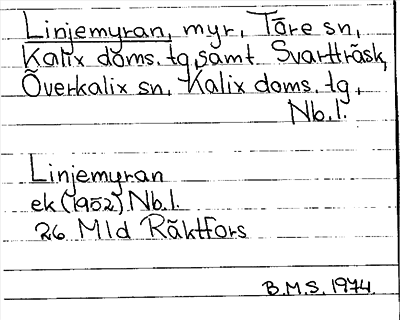 Linjemyran, myr, Töre sn,
Kalix doms. tg, samt Svartträsk,
Överkalix sn, Kalix doms. tg,
Nb.l.
Linjemyran
ek (1952) Nb.l.
26 Mld Räktfors
B.M.S. 1974.